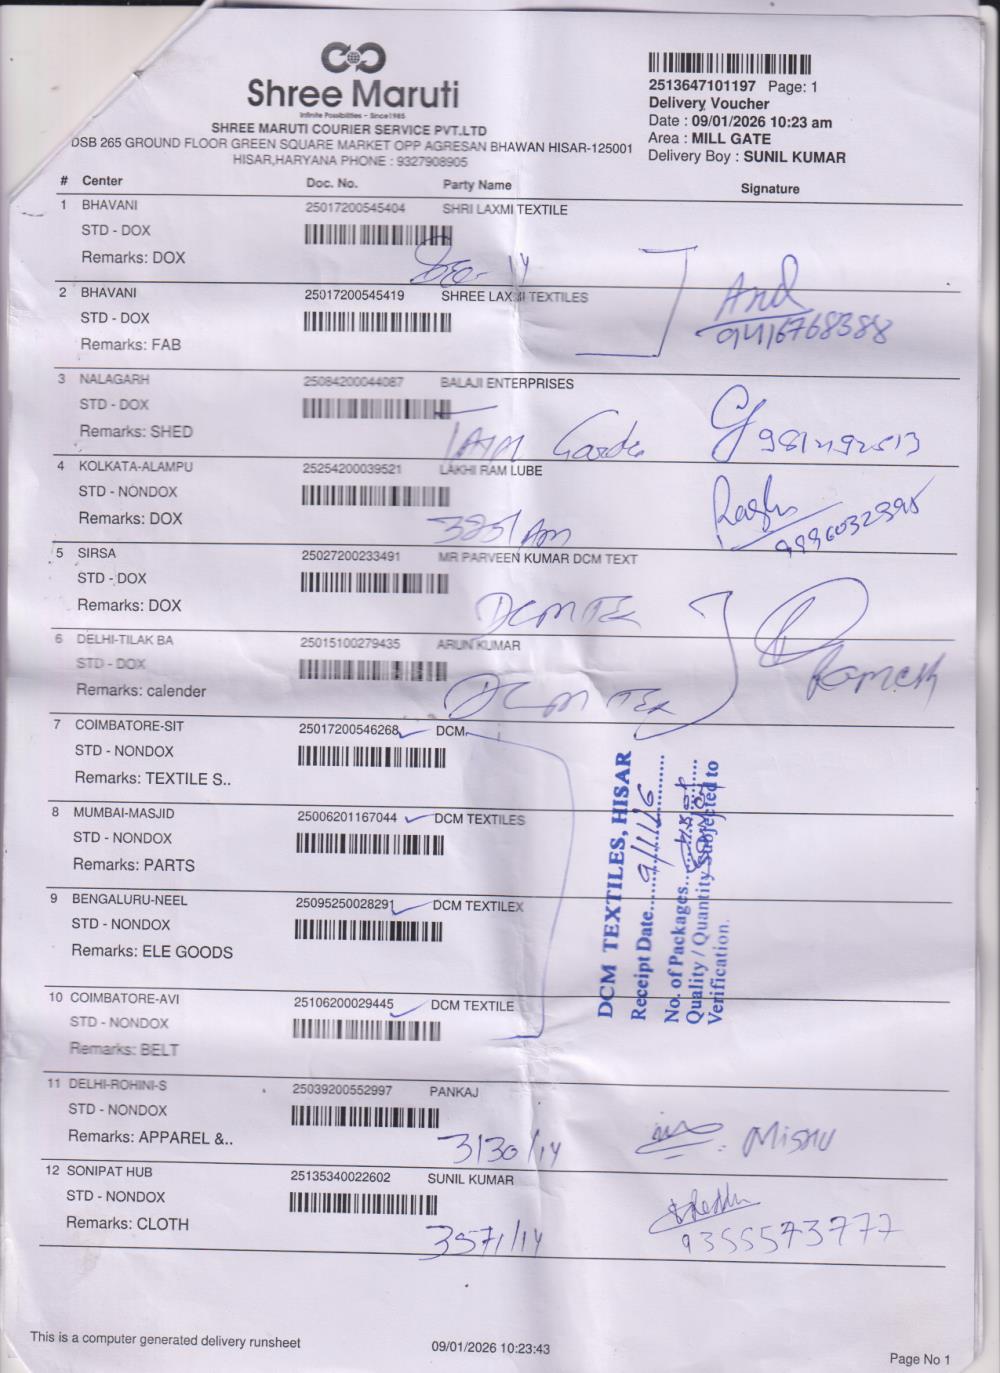 Shree Maruti
Infinite Possibilities - Since1985
SHREE MARUTI COURIER SERVICE PVT.LTD
DSB 265 GROUND FLOOR GREEN SQUARE MARKET OPP AGRESAN BHAWAN HISAR-125001
HISAR,HARYANA PHONE : 9327908905
2513647101197 Page: 1
Delivery Voucher
Date : 09/01/2026 10:23 am
Area : MILL GATE
Delivery Boy : SUNIL KUMAR
# Center Doc. No. Party Name Signature
1 BHAVANI 25017200545404 SHRI LAXMI TEXTILE
STD - DOX
Remarks: DOX
2 BHAVANI 25017200545419 SHREE LAXMI TEXTILES
STD - DOX
Remarks: FAB
9416768388
3 NALAGARH 25084200044087 BALAJI ENTERPRISES
STD - DOX
Remarks: SHED
4 KOLKATA-ALAMPU 25254200039521 LAKHI RAM LUBE
STD - NONDOX
Remarks: DOX
5 SIRSA 25027200233491 MR PARVEEN KUMAR DCM TEXT
STD - DOX
Remarks: DOX
DCM TEX
6 DELHI-TILAK BA 25015100279435 ARUN KUMAR
STD - DOX
Remarks: calender
DCM TEX
Ramesh
7 COIMBATORE-SIT 25017200546268 DCM.
STD - NONDOX
Remarks: TEXTILE S..
8 MUMBAI-MASJID 25006201167044 DCM TEXTILES
STD - NONDOX
Remarks: PARTS
9 BENGALURU-NEEL 25095250028291 DCM TEXTILEX
STD - NONDOX
Remarks: ELE GOODS
10 COIMBATORE-AVI 25106200029445 DCM TEXTILE
STD - NONDOX
Remarks: BELT
DCM TEXTILES, HISAR
Receipt Date
No. of Packages
Quality / Quantity Subjected to
Verification.
11 DELHI-ROHINI-S 25039200552997 PANKAJ
STD - NONDOX
Remarks: APPAREL &..
3130/14
12 SONIPAT HUB 25135340022602 SUNIL KUMAR
STD - NONDOX
Remarks: CLOTH
3571/14
9355573777
This is a computer generated delivery runsheet
09/01/2026 10:23:43
Page No 1